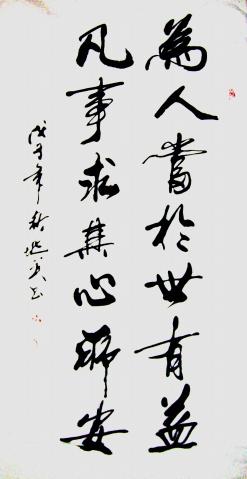 為人當於世有益
凡事求其心所安
戊子年